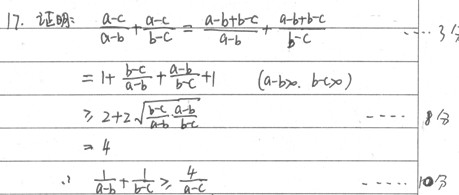 17. 证明: \frac{a-c}{a-b}+\frac{a-c}{b-c}=\frac{a-b+b-c}{a-b}+\frac{a-b+b-c}{b-c} ····· 3分
=1+\frac{b-c}{a-b}+\frac{a-b}{b-c}+1 (a-b>0. b-c>0)
≥2+2\sqrt{\frac{b-c}{a-b}\frac{a-b}{b-c}} ---- 8分
=4
∴ \frac{1}{a-b}+\frac{1}{b-c}≥\frac{4}{a-c} ---- 10分